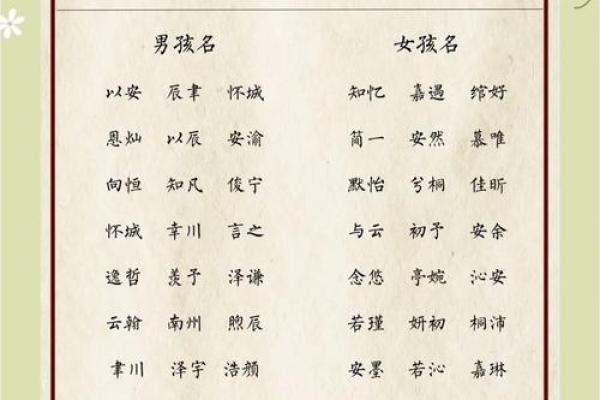 男孩名 女孩名
以安 辰聿 怀城 知忆 嘉遇 绾好
恩灿 以辰 安渝 简一 安然 慕唯
向恒 知凡 俊宁 默怡 兮桐 佳昕
怀城 幸川 言之 与云 初予 安余
逸哲 羡予 泽谦 念悠 亭婉 沁安
云翰 南州 煦辰 若瑾 妍初 桐沛
聿川 泽宇 浩颜 安墨 若沁 嘉琳